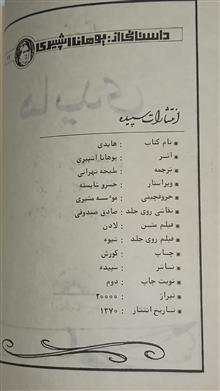 داستانی از: یوهانا اشپیری
انتشارات سپیده
نام کتاب : هایدی
اثر : یوهانا اشپیری
ترجمه : ملیحه تهرانی
ویراستار : خسرو شایسته
حروفچینی : موسسه مشیری
نقاشی روی جلد : صادق صندوقی
فیلم متن : لادن
فیلم روی جلد : شیوه
چاپ : کورش
ناشر : سپیده
نوبت چاپ : دوم
تیراژ : ۲۰۰۰۰
تاریخ انتشار : ۱۳۷۰